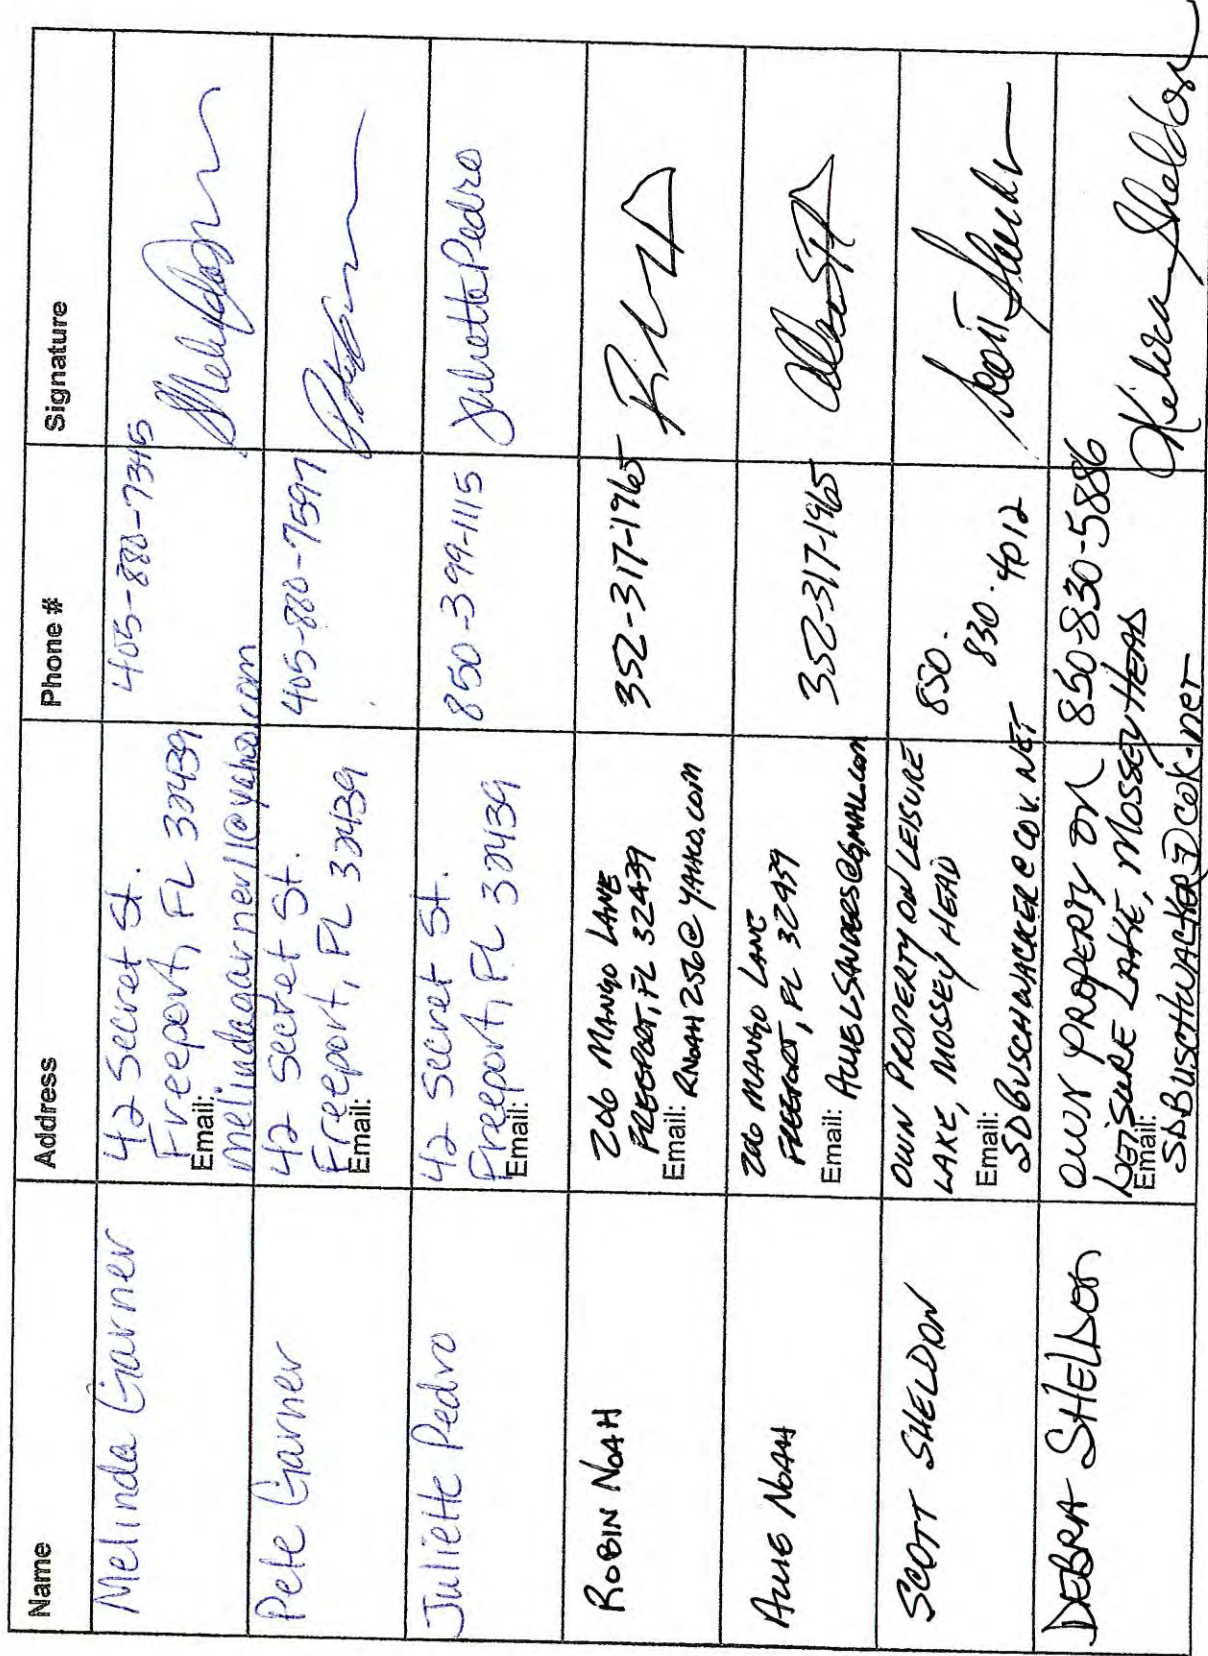 Name Address Phone # Signature
Melinda Garner
42 Secret St.
Freeport, FL 32439
Email:
melindagarner11@yahoo.com
405-880-7345
Pete Garner
42 Secret St.
Freeport, FL 32439
Email:
405-880-7597
Juliette Pedro
42 Secret St.
Freeport, FL 32439
Email:
850-399-1115
Juliette Pedro
ROBIN NOAH
206 MANGO LANE
FREEPORT, FL 32439
Email: RNOAH256@YAHOO.COM
352-317-1965
NOAH
206 MANGO LANE
FREEPORT, FL 32439
Email:
352-317-1965
SCOTT SHELDON
OWN PROPERTY ON LEISURE
LAKE, MOSSEY HEAD
Email:
SDBUSCHWACKER@COX.NET
850.
830.4012
DEBRA SHELDON
OWN PROPERTY ON
LEISURE LAKE, MOSSEY HEAD
Email:
SDBUSCHWACKER@COX.net
850-830-5886
Sheldon